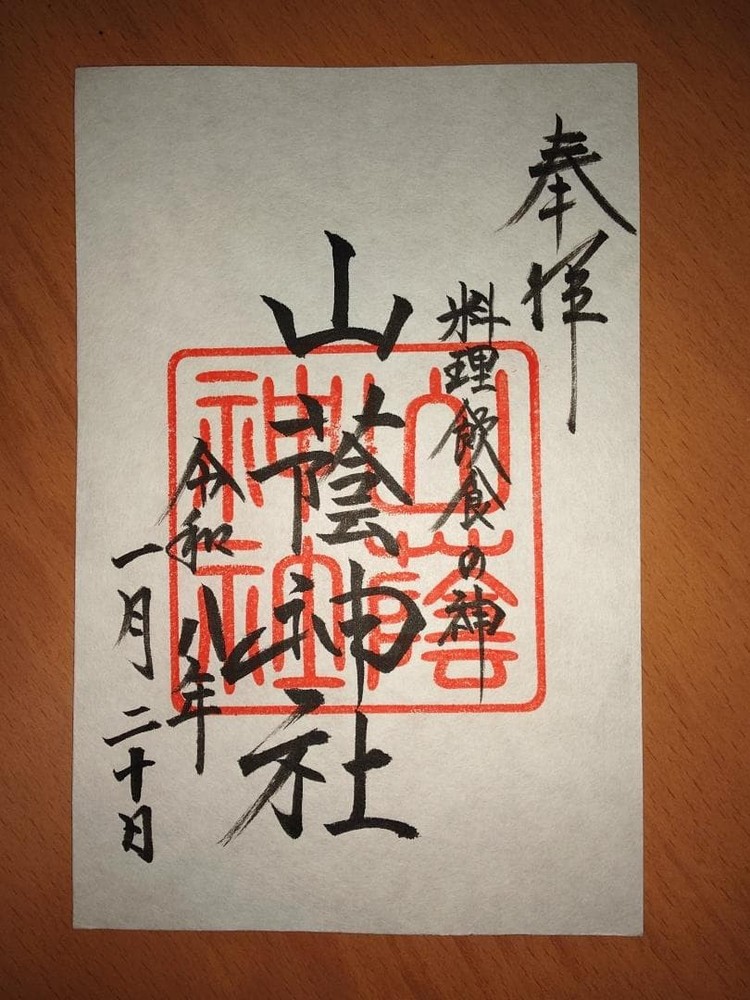 奉拝
料理飲食の神
山蔭神社
令和八年
一月二十日
山蔭
神社